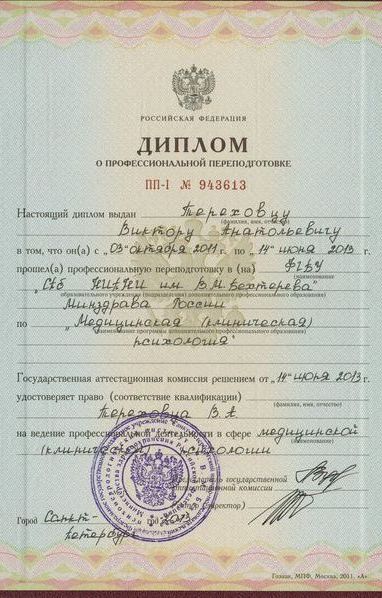 РОССИЙСКАЯ ФЕДЕРАЦИЯ
ДИПЛОМ
О ПРОФЕССИОНАЛЬНОЙ ПЕРЕПОДГОТОВКЕ
ПП-I № 943613
Настоящий диплом выдан Тереховцу
(фамилия, имя, отчество)
Виктору Анатольевичу
в том, что он(а) с „03“ октября 2011 г. по „14“ июня 2013 г.
прошел(а) профессиональную переподготовку в (на) ФГБУ
(наименование
„СПб НИПНИ им В.М. Бехтерева“
образовательного учреждения (подразделения) дополнительного профессионального образования)
Минздрава России
по „Медицинская (клиническая)
(наименование программы дополнительного профессионального образования)
психология“
Государственная аттестационная комиссия решением от „14“ июня 2013 г.
удостоверяет право (соответствие квалификации)
(фамилия, имя, отчество)
Тереховца В.А
на ведение профессиональной деятельности в сфере медицинской
(наименование)
(клинической) психологии
Председатель государственной
аттестационной комиссии
Ректор (директор)
Город Санкт-
Петербург
Гознак, МПФ, Москва, 2011, «А»